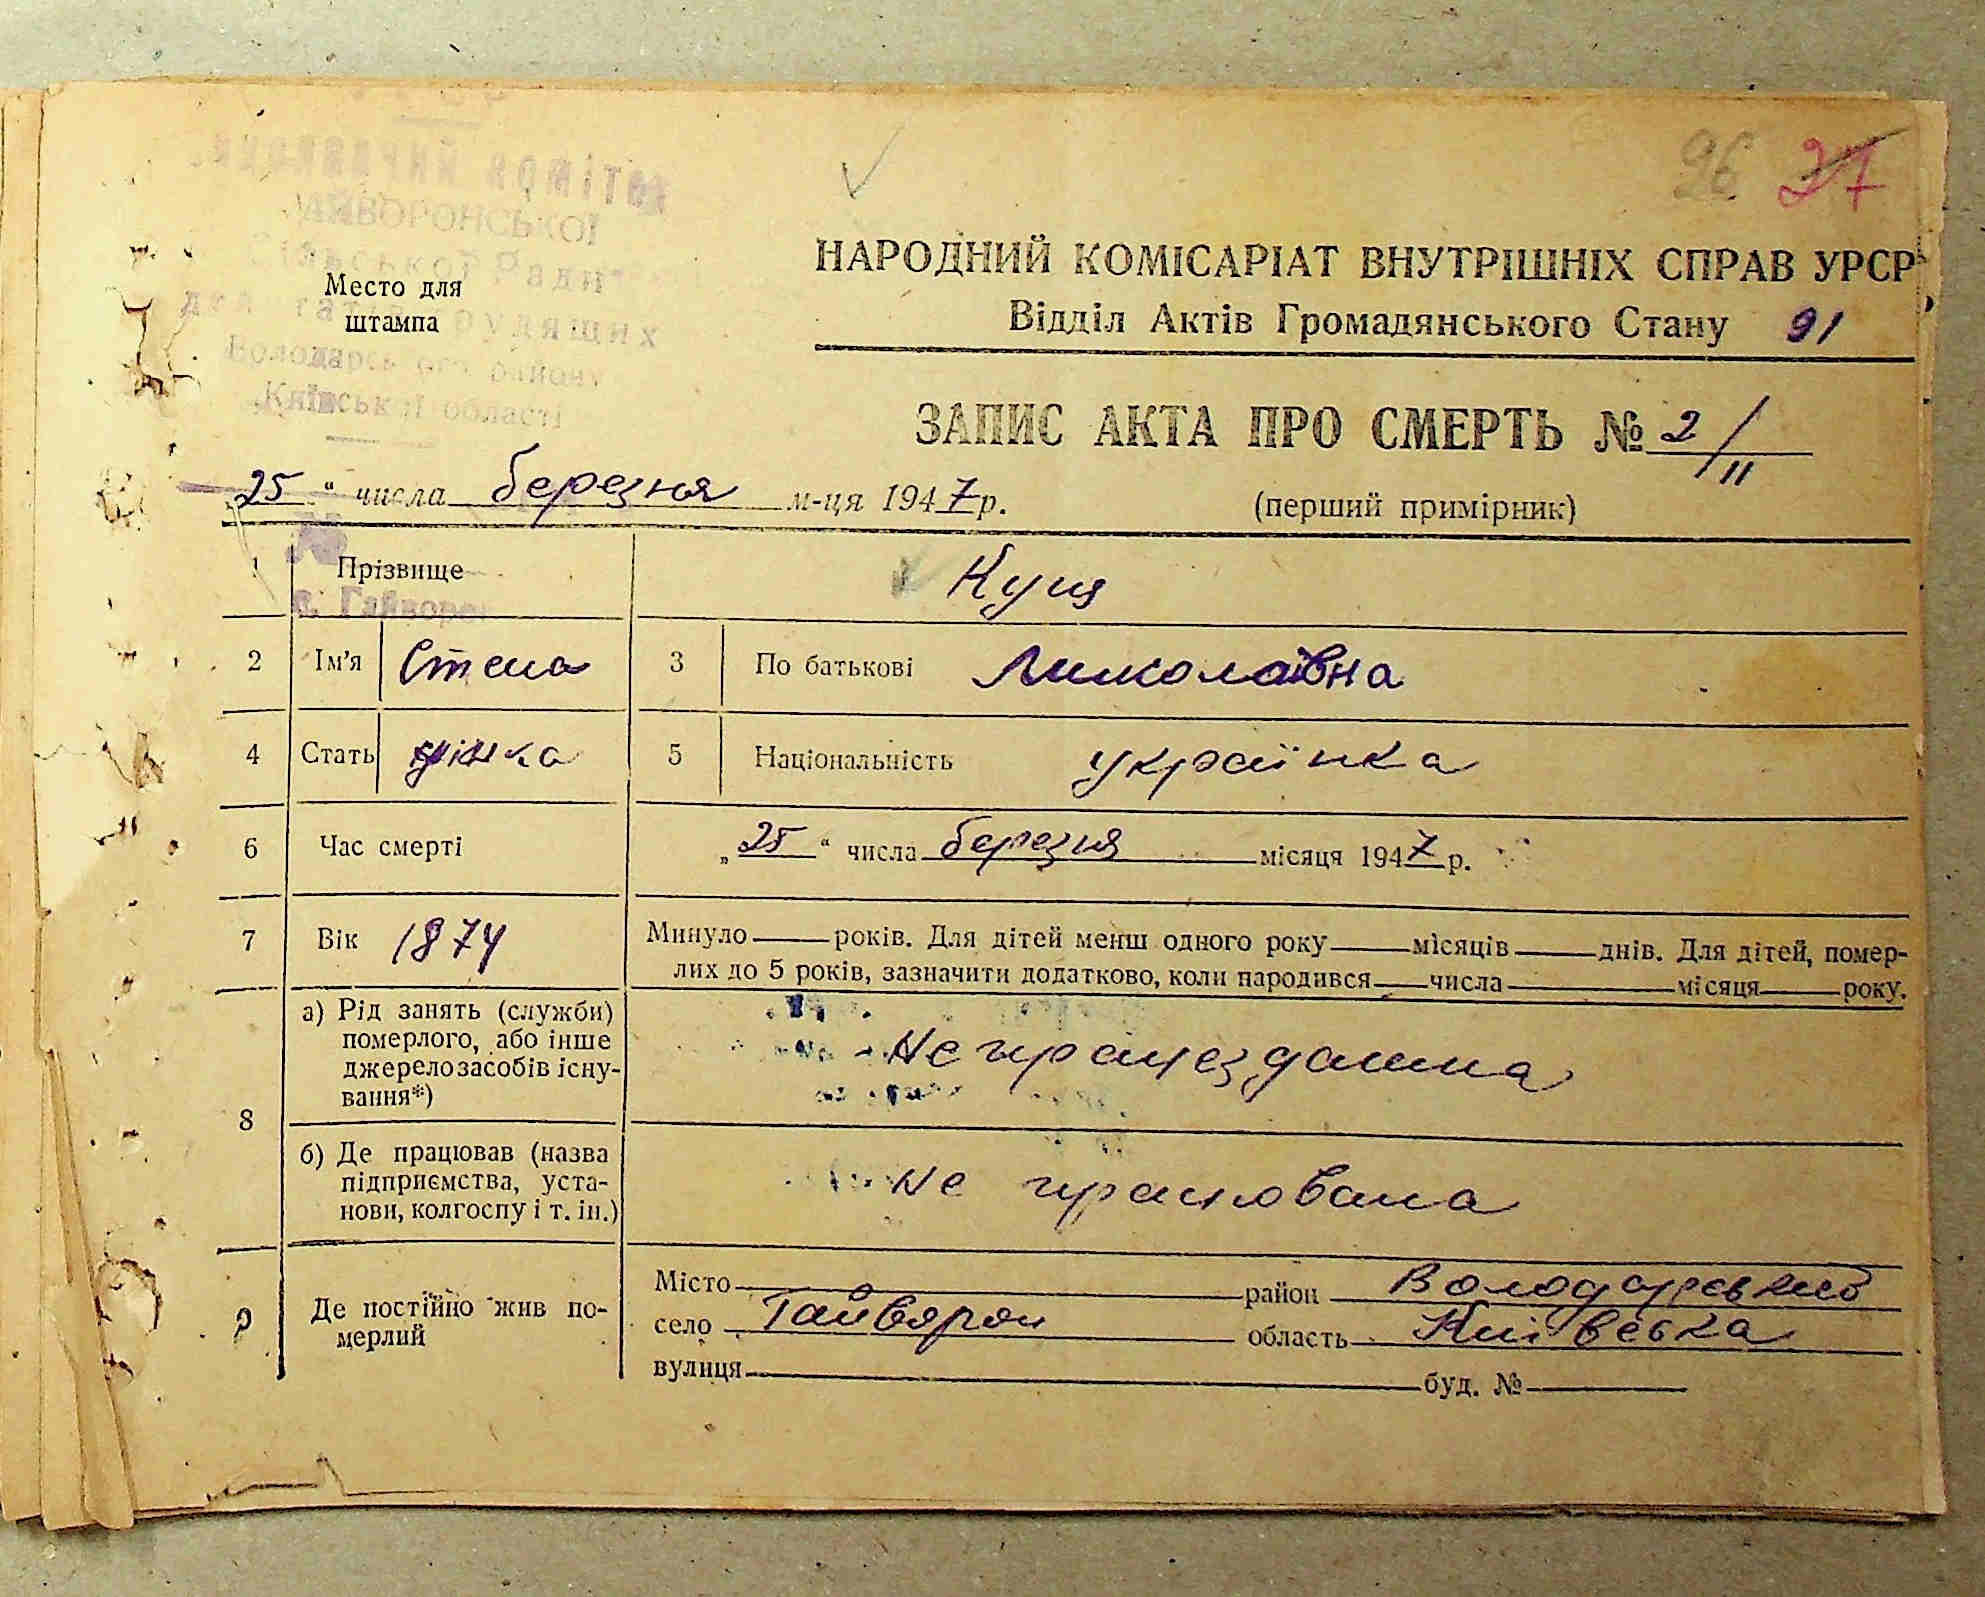 96 27
ГАЙВОРОНСЬКОЇ
Сільської Ради
Место для
штампа
депутатів трудящих
Володарського району
Київської області
НАРОДНИЙ КОМІСАРІАТ ВНУТРІШНІХ СПРАВ УРСР
Відділ Актів Громадянського Стану 91
ЗАПИС АКТА ПРО СМЕРТЬ № 2/11
25 " числа березня м-ця 1947 р.
(перший примірник)
№
с. Гайворон
1 Прізвище Куца
2 Ім'я Степа 3 По батькові Миколаївна
4 Стать жінка 5 Національність українка
6 Час смерті „ 25 " числа березня місяця 1947 р.
7 Вік 1874 Минуло років. Для дітей менш одного року місяців днів. Для дітей, помер-
лих до 5 років, зазначити додатково, коли народився числа місяця року.
8 а) Рід занять (служби)
померлого, або інше
джерело засобів існу-
вання*)
Непрацездатна
б) Де працював (назва
підприємства, уста-
нови, колгоспу і т. ін.)
Не працювала
9 Де постійно жив по-
мерлий
Місто район Володарський
село Гайворон область Київська
вулиця буд. №